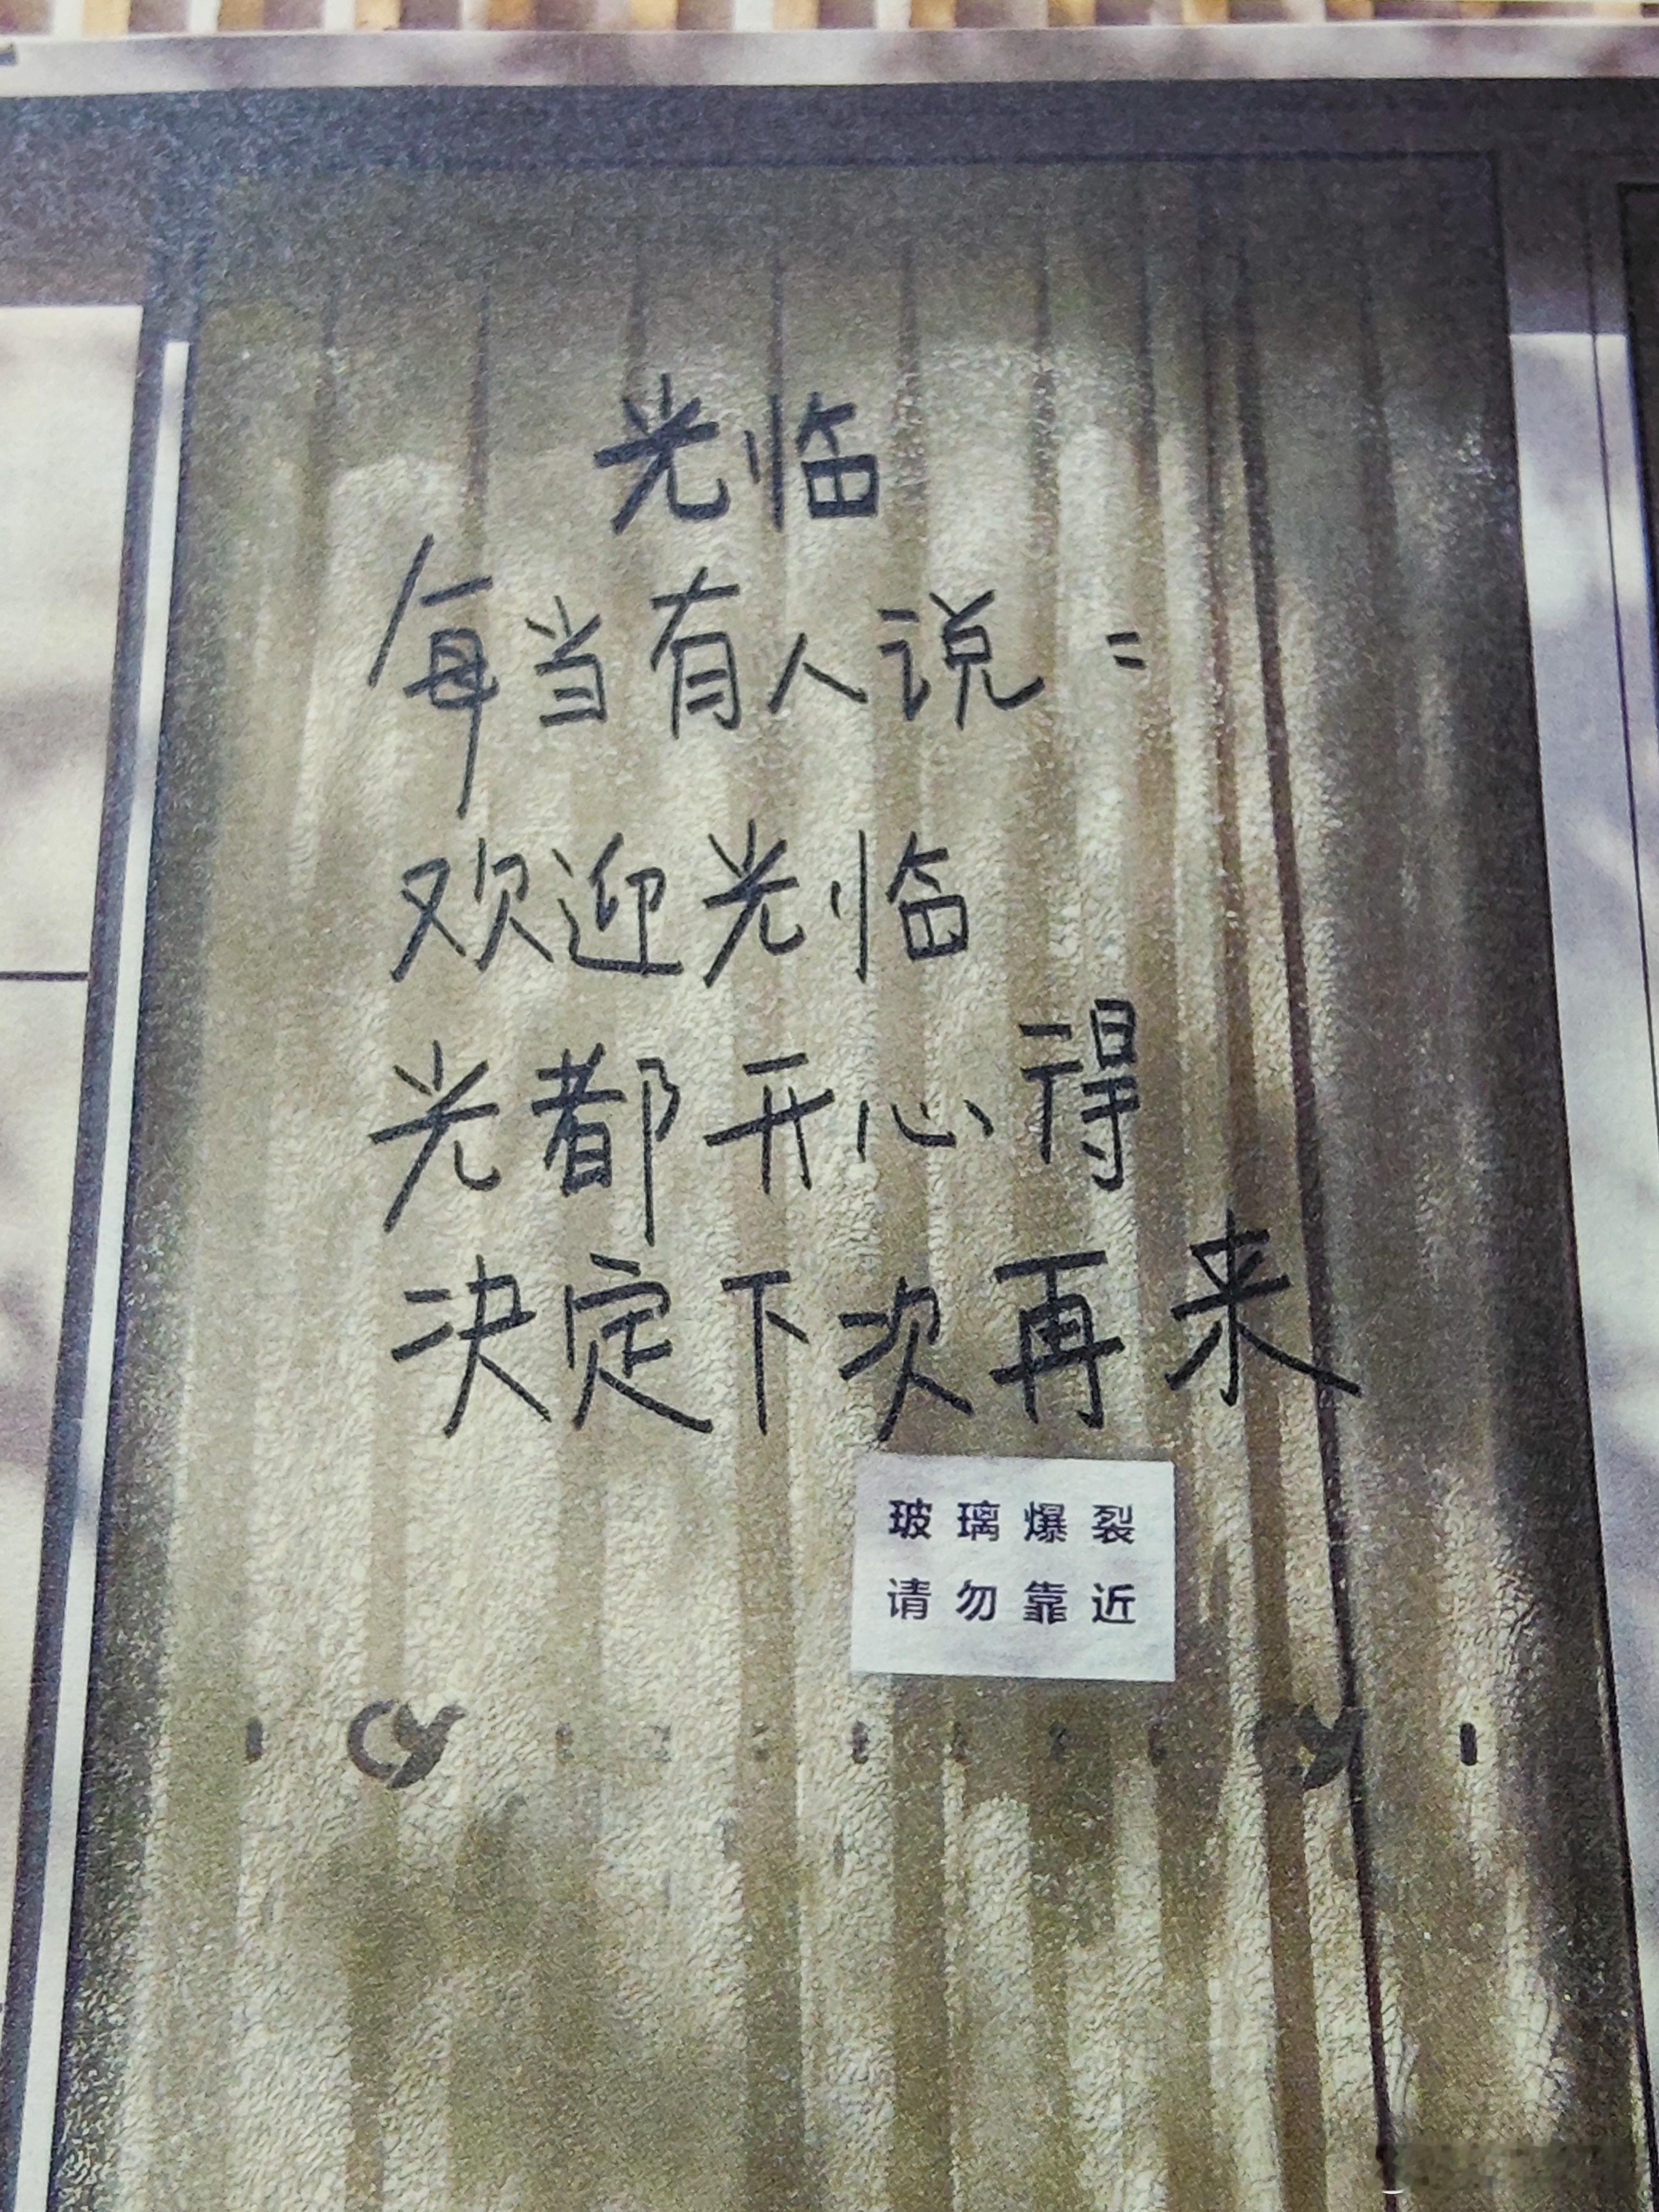 光临
每当有人说：
欢迎光临
光都开心得
决定下次再来
玻璃爆裂
请勿靠近